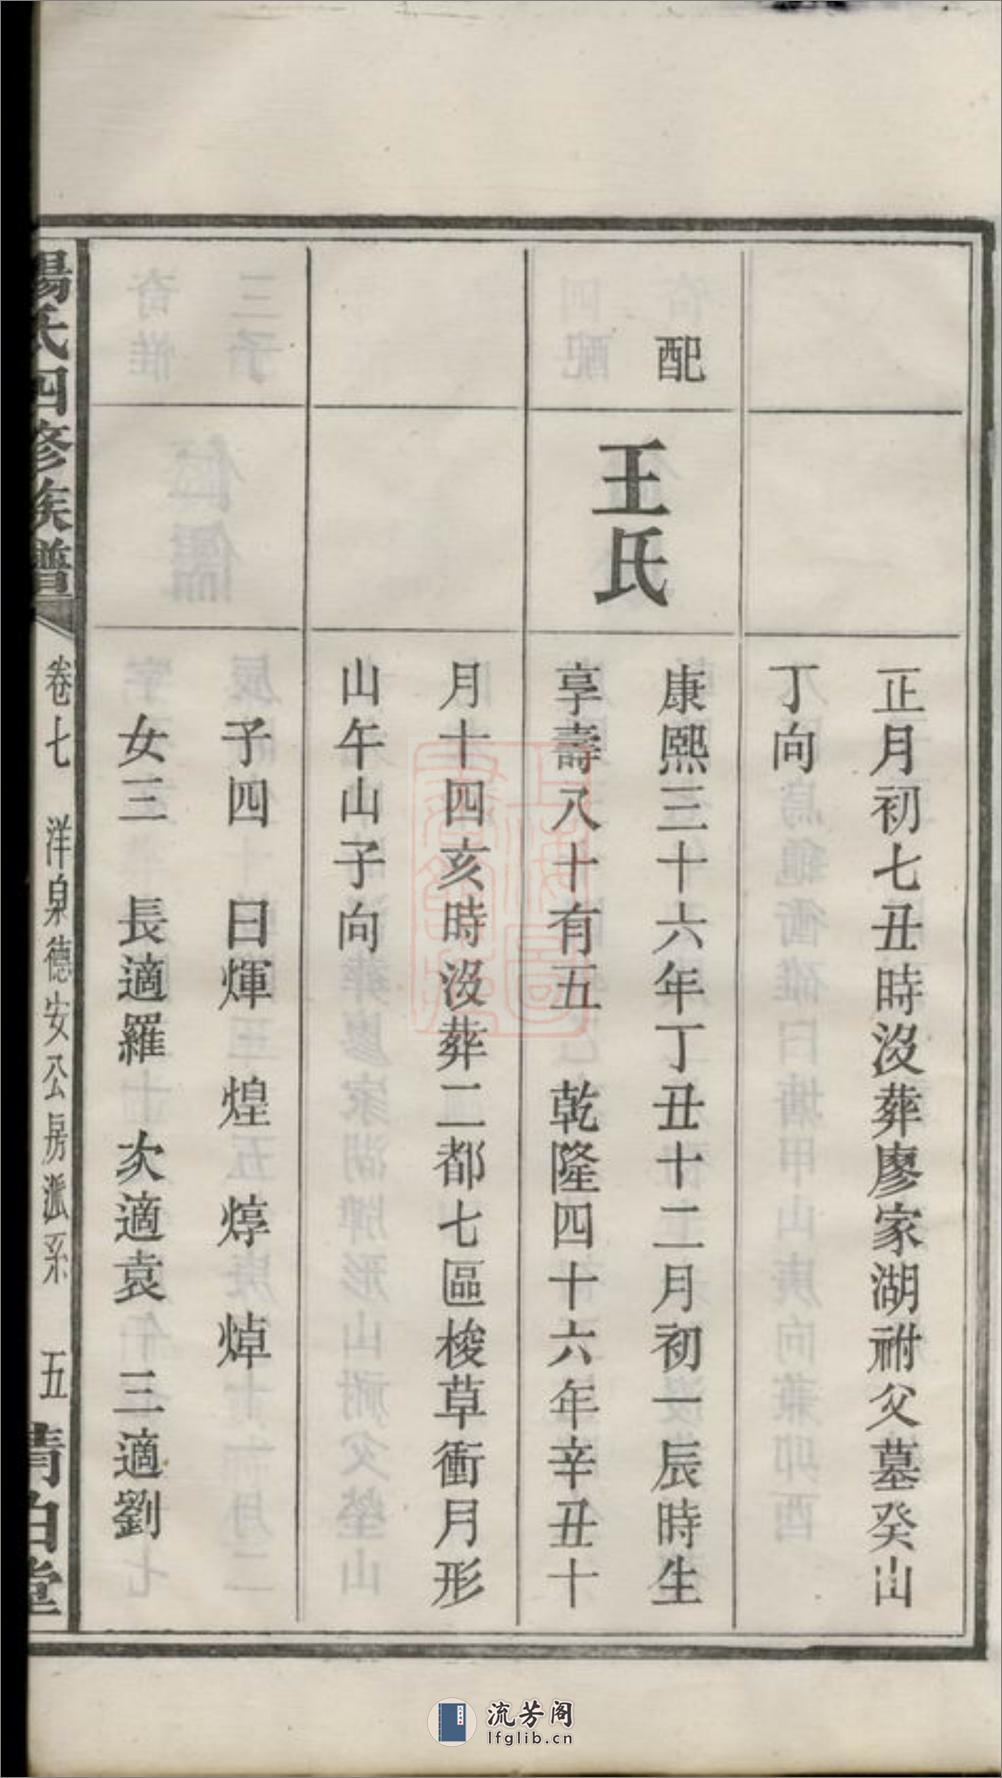 正月初七丑時沒葬廖家湖祔父墓癸山
丁向
配
王氏
康熙三十六年丁丑十二月初一辰時生
享壽八十有五 乾隆四十六年辛丑十
月十四亥時沒葬二都七區梭草衝月形
山午山子向
子四 曰煇 煌 焞 焯
女三 長適羅 次適袁 三適劉
楊氏四修族譜 卷七 洋泉德安公房派系 五 清白堂
流芳阁
lfglib.cn